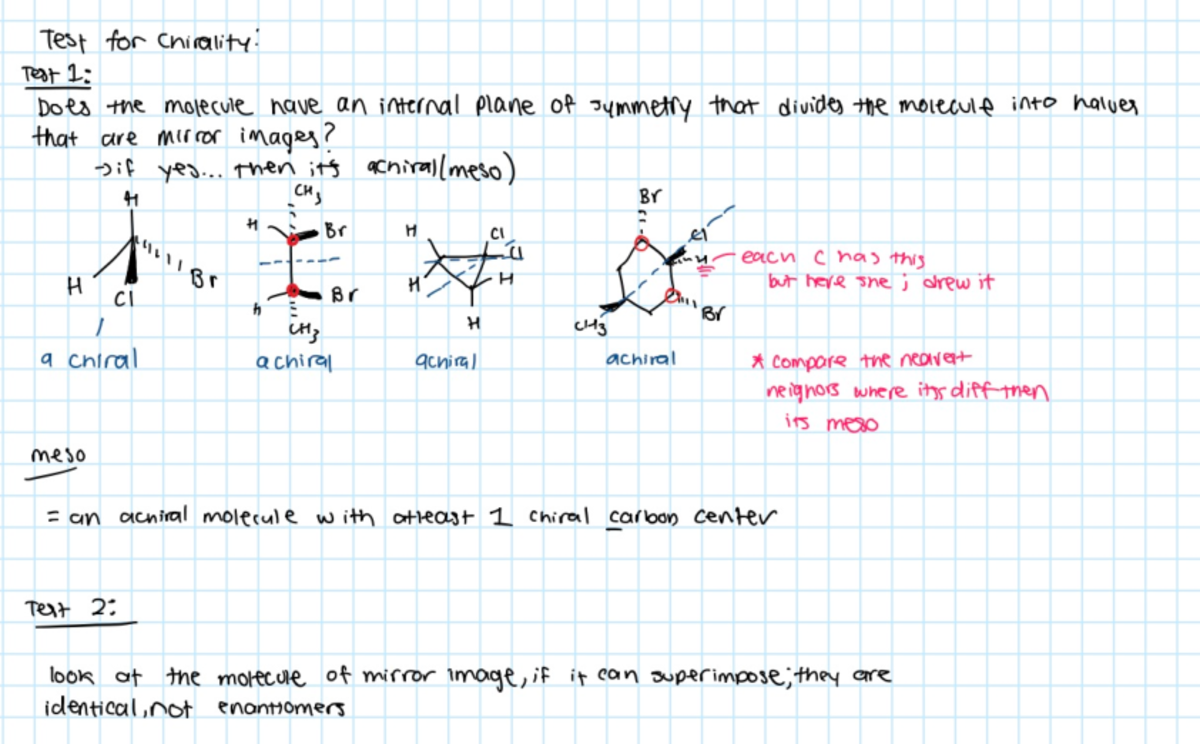 Test for Chirality:
Test 1:
Does the molecule have an internal plane of symmetry that divides the molecule into halves
that are mirror images?
→if yes... then it's achiral(meso)
H
H
Cl
Br
CH3
H
Br
H
Br
CH3
H
Cl
Cl
H
H
H
Br
Cl
H
Br
CH3
each C has this
but here she j drew it
a chiral
achiral
achiral
achiral
* compare the nearest
neighors where its diff then
its meso
meso
= an achiral molecule with atleast 1 chiral carbon center
Test 2:
look at the molecule of mirror image, if it can superimpose; they are
identical, not enantiomers